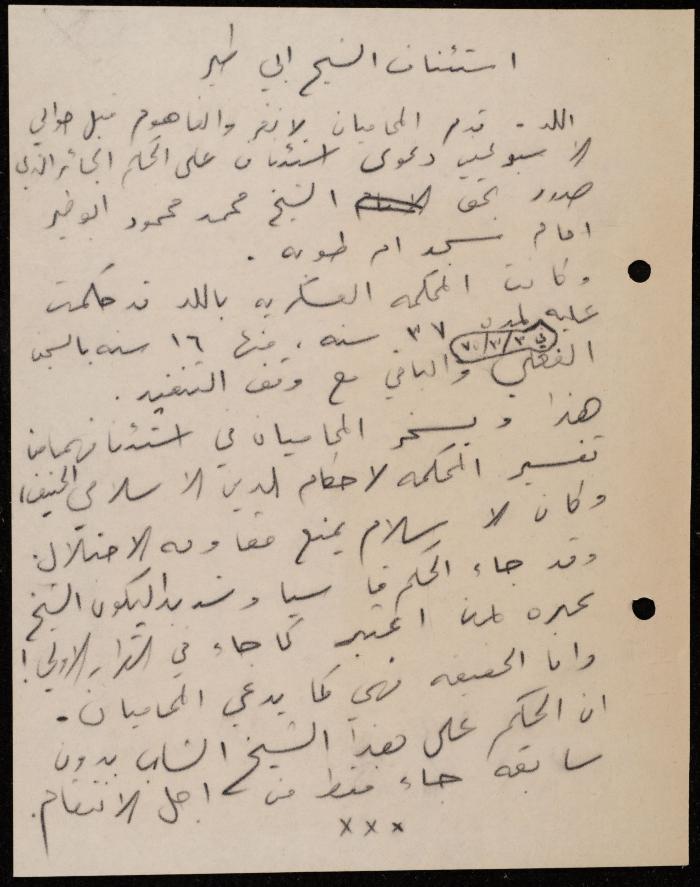 استئناف الشيخ ابي طير
اللد - قدم المحاميان لانغر والناهوم قبل حوالي
الاسبوعين دعوى استئناف على الحكم الجائر الذي
صدر بحق الشيخ محمد محمود ابو طير
امام مسجد ام طوبه .
وكانت المحكمه العسكريه باللد قد حكمت
عليه لمدة ٣٧ سنه ، منها ١٦ سنه بالسجن
الفعلي والباقي مع وقف التنفيذ .
هذا ويسخر المحاميان في استئنافهما من
تفسير المحكمه لاحكام الدين الاسلامي الحنيف ،
وكان الاسلام يمنع مقاومه الاحتلال .
وقد جاء الحكم قاسيا وشديدا ليكون الشيخ
عبره لمن اعتبر كما جاء في القرار الاولي !
واما الحقيقه فهي كما يدعي المحاميان .
ان الحكم على هذا الشيخ الشاب بدون
سابقه جاء فقط من اجل الانتقام .
× × ×